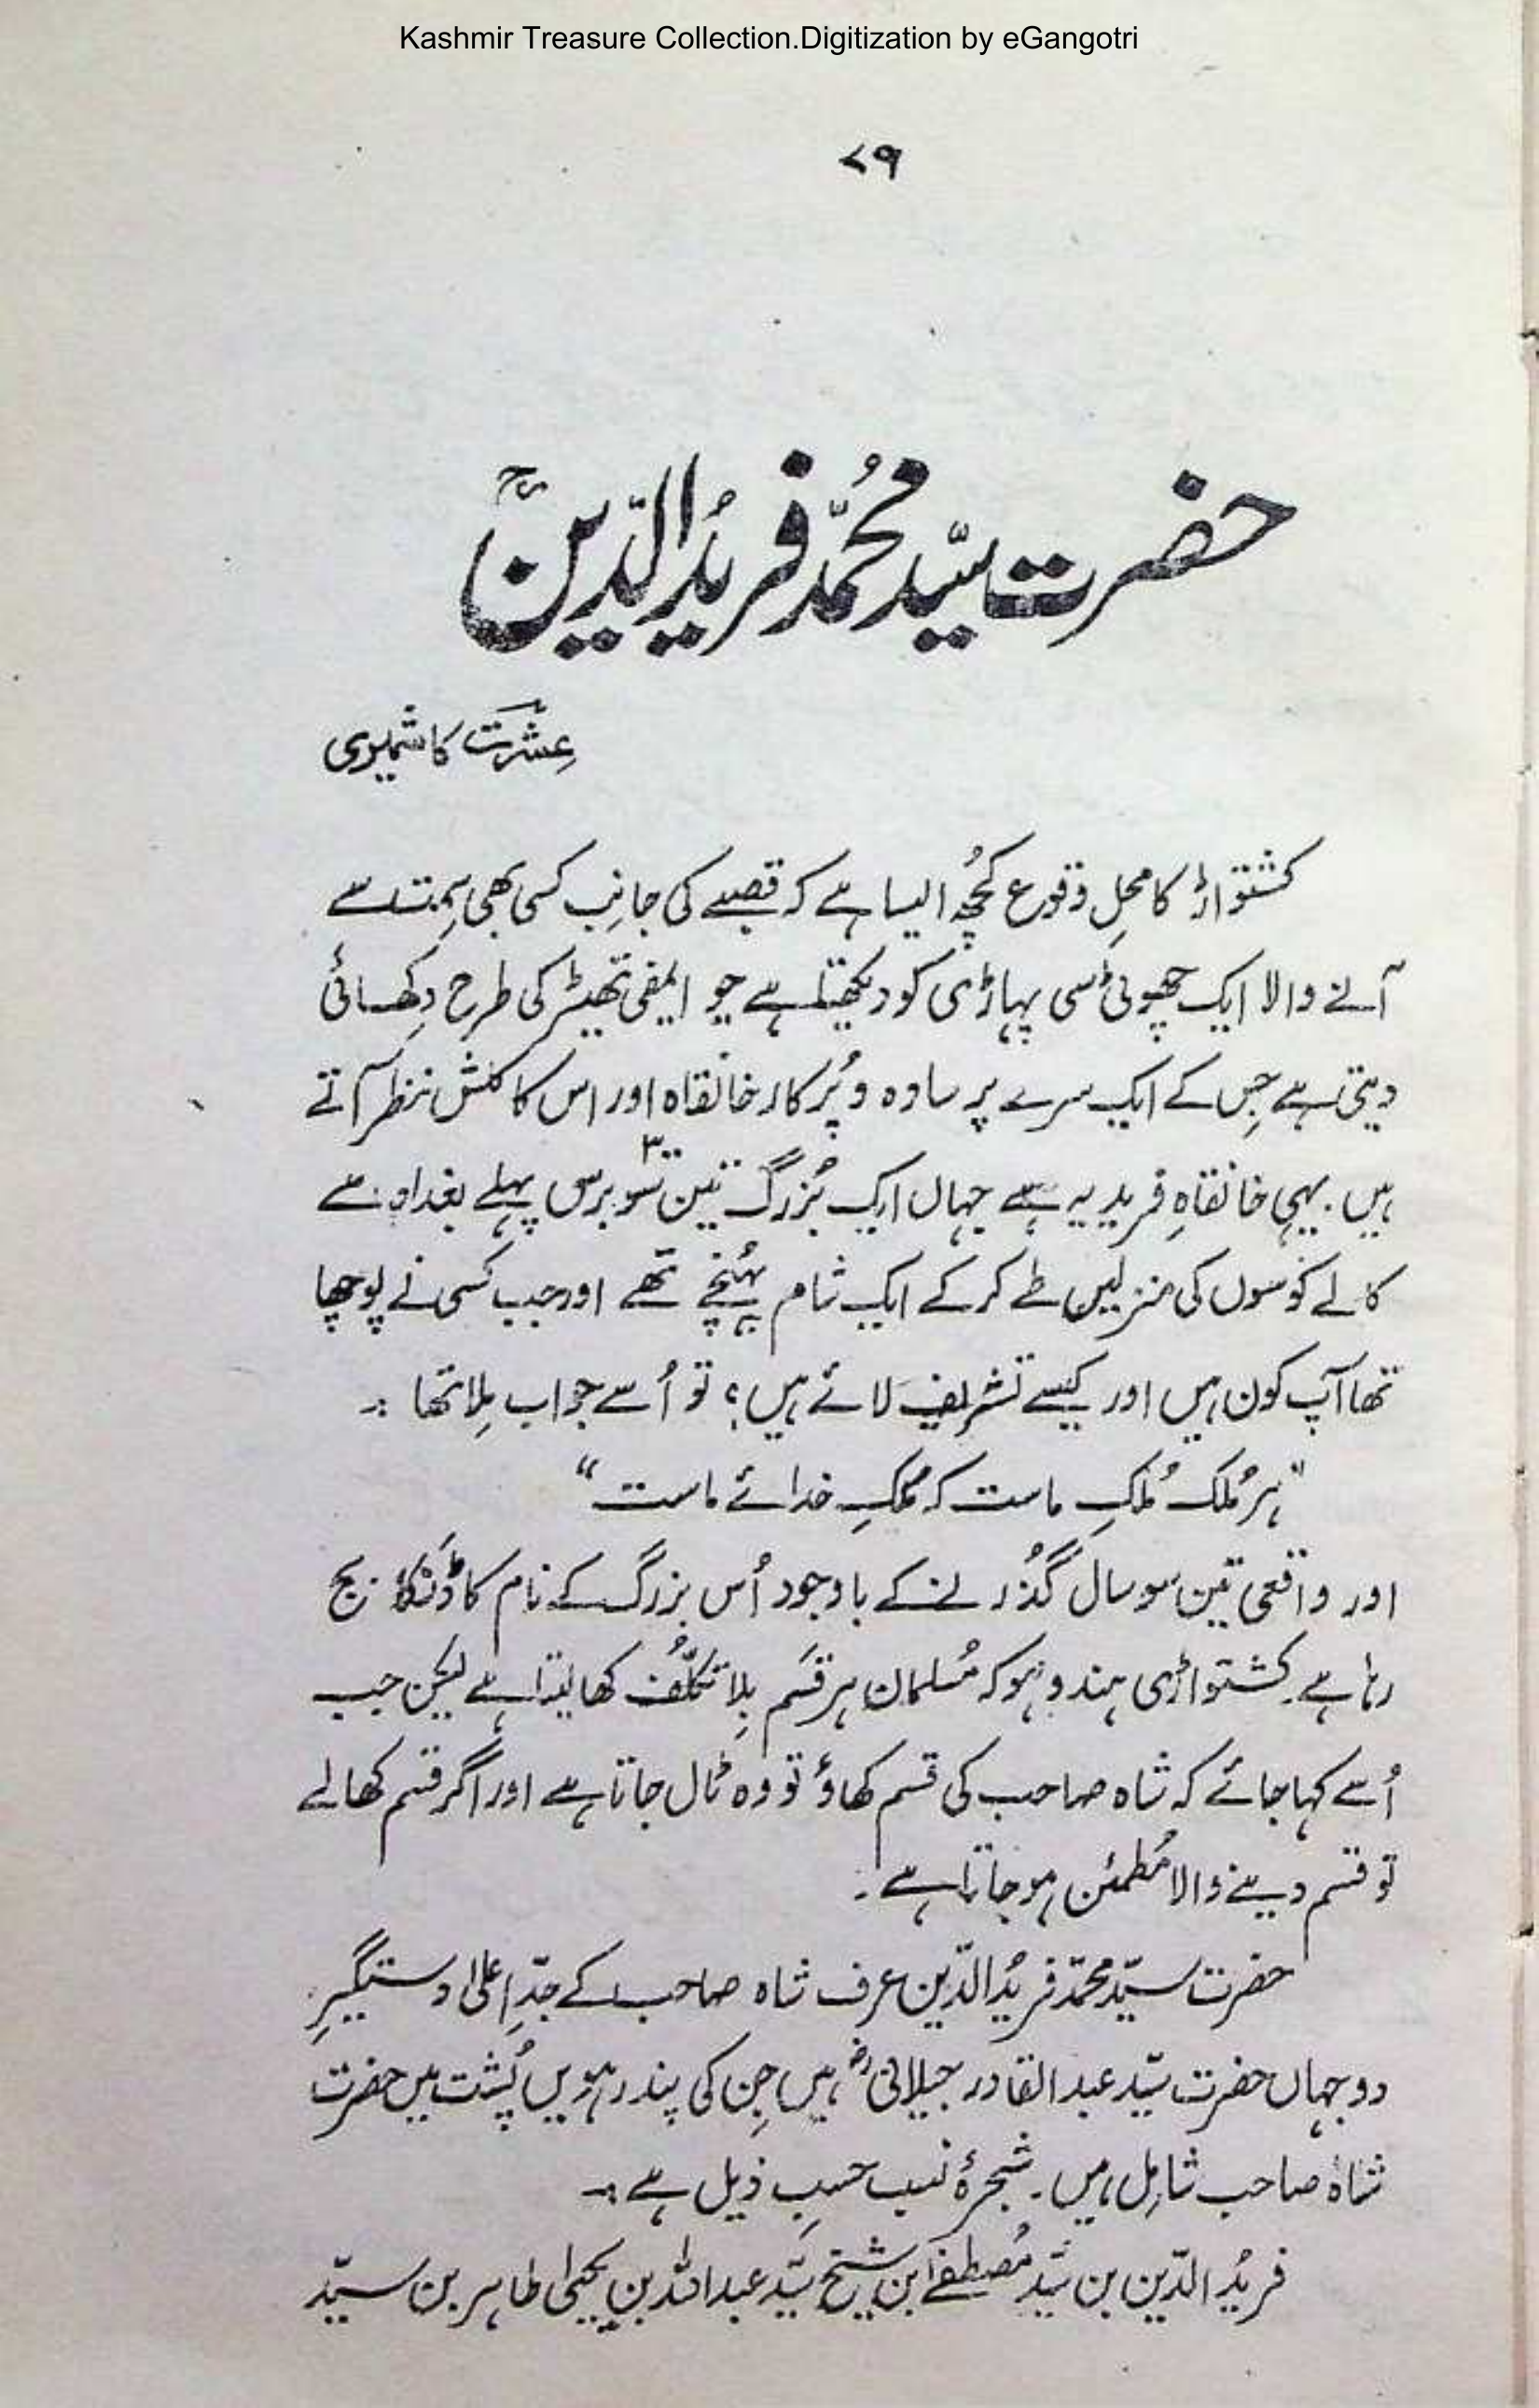 Kashmir Treasure Collection.Digitization by eGangotri
۷۹
حضرت سیّد محُمّد فریدُ الدّینؒ
عِشرتؔ کاشمیری
کشتواڑ کا محلِ وقوع کُچھ ایسا ہے کہ قصبے کی جانِب کسی بھی سِمت سے
آنے والا ایک چھوٹی سی پہاڑی کو دیکھتا ہے جو ایمفی تھیٹر کی طرح دِکھائی
دیتی ہے جِس کے ایک سرے پر سادہ و پُرکار خانقاہ اور اس کا کلش نظر آتے
ہیں۔ یہی خانقاہِ فریدیہ ہے جہاں ایک بُزرگ تین سو ۳۰۰ برس پہلے بغداد سے
کالے کوسوں کی منزلیں طے کر کے ایک شام پہُنچے تھے اور جب کسی نے پوچھا
تھا آپ کون ہیں اور کیسے تشریف لائے ہیں؟ تو اُسے جواب مِلا تھا :۔
”ہر مُلک مُلکِ ماست کہ مُلکِ خدائے ماست“
اور واقعی تین سو سال گُذرنے کے باوجود اُس بزرگ کے نام کا ڈنکا بج
رہا ہے۔ کشتواڑی ہندو ہو کہ مُسلمان ہر قسَم بِلا تکلّف کھا لیتا ہے لیکن جب
اُسے کہا جائے کہ شاہ صاحب کی قسم کھاؤ تو وہ ٹال جاتا ہے اور اگر قسم کھا لے
تو قسم دینے والا مُطمئن ہو جاتا ہے۔
حضرت سیّد محمّد فریدُ الدّین عرف شاہ صاحب کے جدِّ اعلیٰ دستگیرِ
دو جہاں حضرت سیّد عبد القادر جیلانیؓ ہیں جِن کی پندرہویں پُشت میں حضرت
شاہ صاحب شامِل ہیں۔ شجرۂ نسب حسبِ ذیل ہے :۔
فریدُ الدّین بن سیّد مُصطفےٰ ابن شیخ سیّد عبداللہ بن یحییٰ طاہر بن سیّد